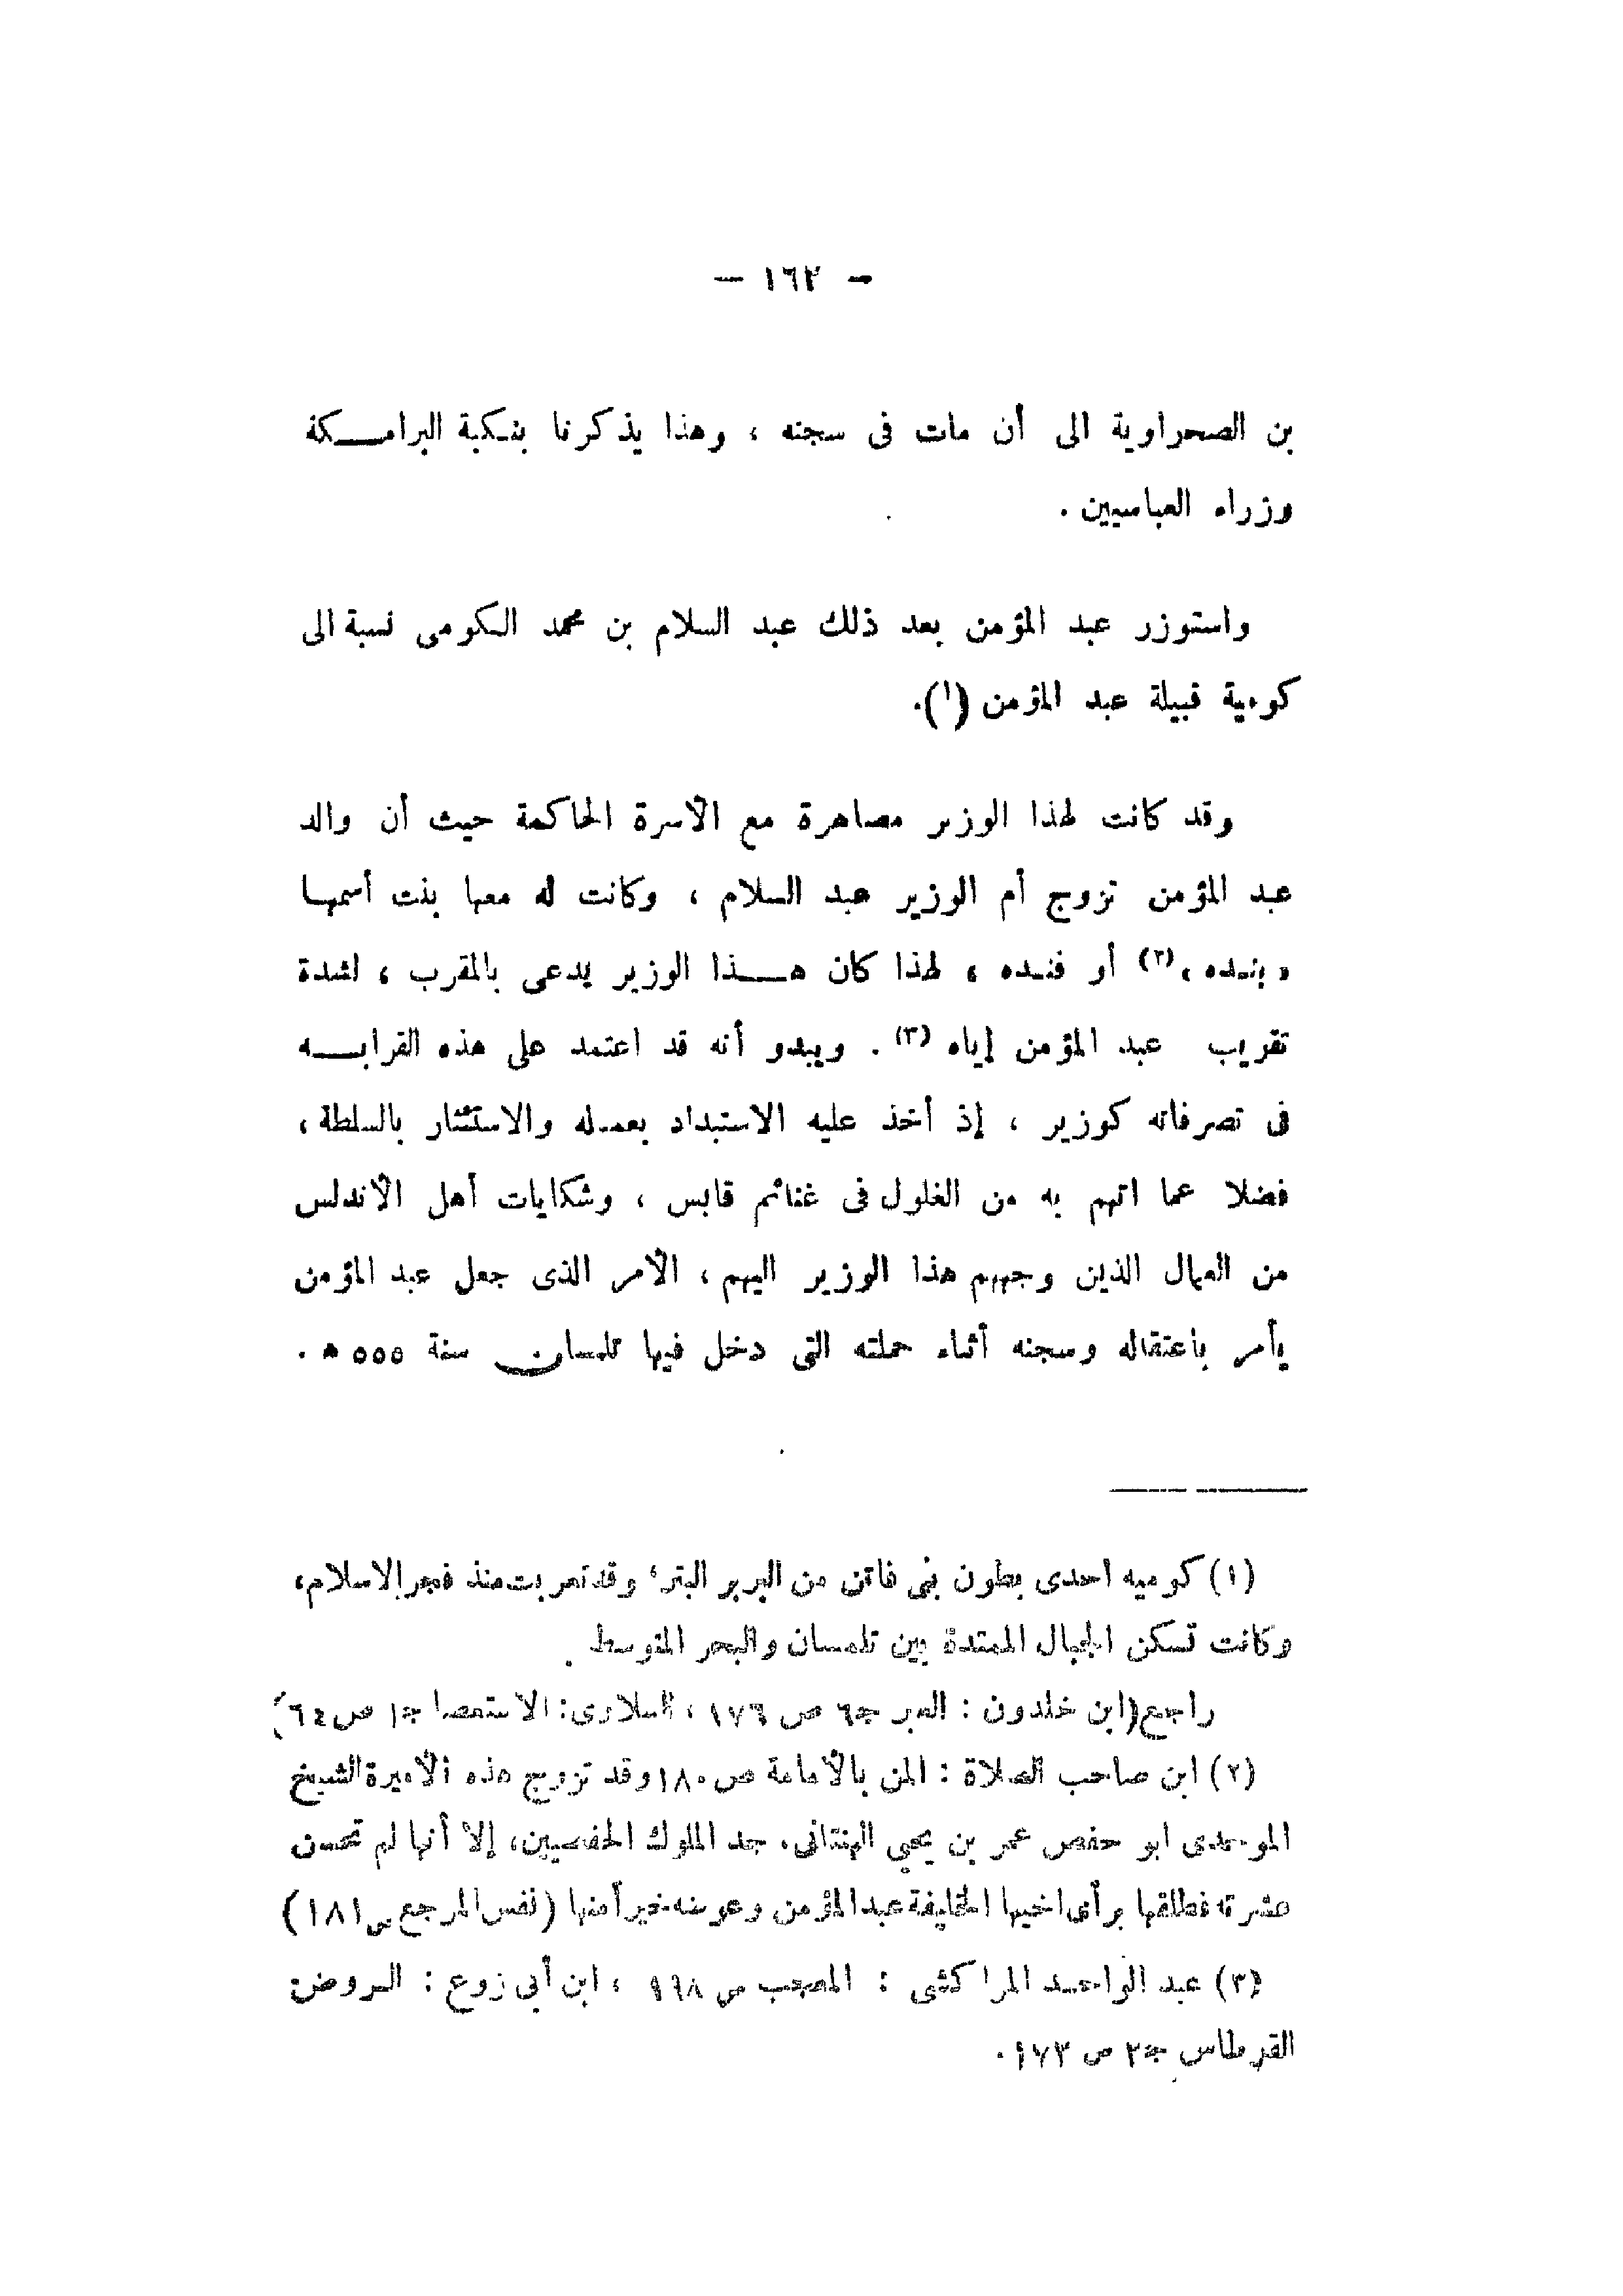 — ١٦٢ —
بن الصحراوية الى أن مات فى سجنه ، وهذا يذكرنا بنكبة البرامكة
وزراء العباسيين .
واستوزر عبد المؤمن بعد ذلك عبد السلام بن محمد الكومى نسبة الى
كومية قبيلة عبد المؤمن (١).
وقد كانت لهذا الوزير مصاهرة مع الأسرة الحاكمة حيث أن والد
عبد المؤمن تزوج أم الوزير عبد السلام ، وكانت له معها بنت أسمها
« بنده »(٢) أو فنده ، لهذا كان هذا الوزير يدعى بالمقرب ، لشدة
تقريب عبد المؤمن إياه (٣) . ويبدو أنه قد اعتمد على هذه القرابه
فى تصرفاته كوزير ، إذ أخذ عليه الاستبداد بعمله والاستئثار بالسلطة ،
فضلا عما اتهم به من الغلول فى غنائم قابس ، وشكايات أهل الأندلس
من العمال الذين وجههم هذا الوزير اليهم ، الأمر الذى جعل عبد المؤمن
يأمر باعتقاله وسجنه أثناء حملته التى دخل فيها تلمسان سنة ٥٥٥ ه .
(١) كوميه احدى بطون بنى فاتن من البربر البتر ، وقد تعربت منذ فجر الاسلام ،
وكانت تسكن الجبال الممتدة بين تلمسان والبحر المتوسط .
راجع (ابن خلدون : العبر ج٦ ص ١٧٦ ، السلاوى : الاستقصا ج١ ص ٦٤)
(٢) ابن صاحب الصلاة : المن بالأمامة ص ١٨٠ وقد تزوج هذه الأميرة الشيخ
الموحدى ابو حفص عمر بن يحيى الهنتانى ، جد الملوك الحفصيين ، إلا أنها لم تحسن
عشرته فطلقها برأى اخيها الخليفة عبد المؤمن وعوضه خيرا منها (نفس المرجع ص ١٨١)
(٣) عبد الواحد المراكشى : المعجب ص ١٩٨ ، ابن أبى زرع : الروض
القرطاس ج٢ ص ١٧٣ .